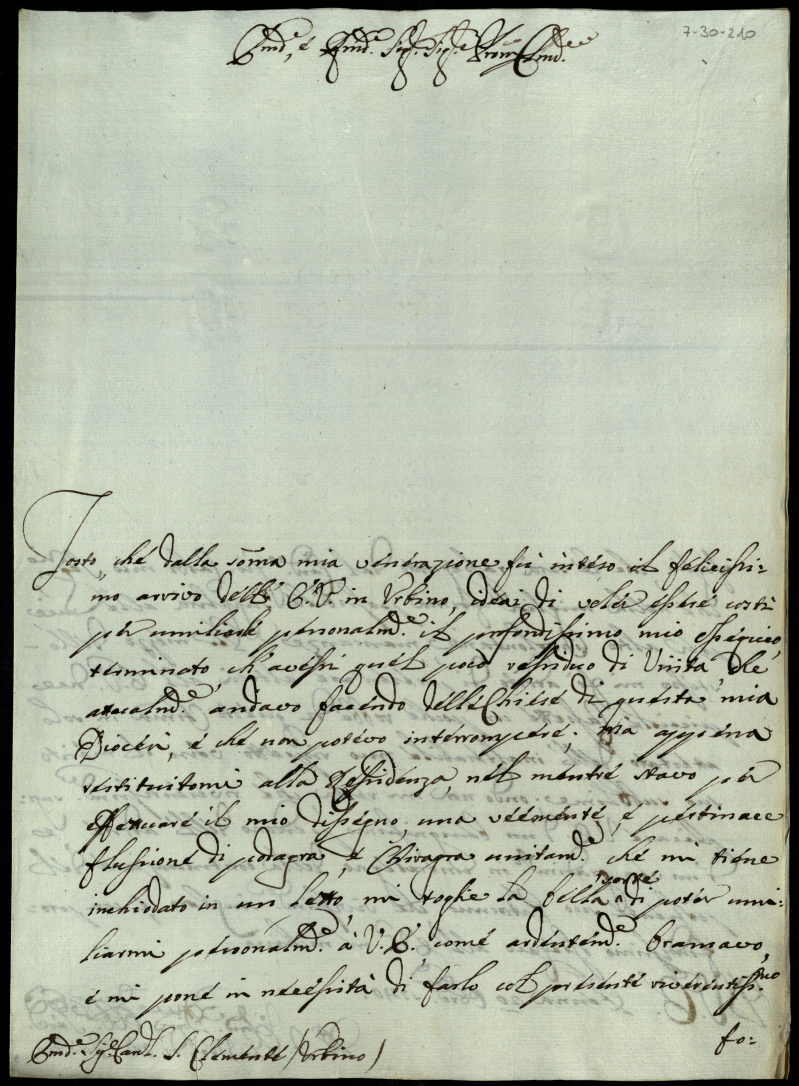 7-30-210
Em.º, e Rmd.º Sig.r Sig.r Pron Colmd.º
Tosto, che dalla soma mia venerazione fù inteso il felicissi=
mo arrivo dell' E. V. in Urbino, ideai di voler essere costì
per umiliarle personalm.e il profondissimo mio ossequio,
terminato ch'avessi quel poco residuo di Visita che
attualm.e andavo facendo delle Chiese di questa mia
Diocesi, e che non potevo interrompere; Ma appena
restituitomi alla Residenza, nel mentre stavo per
effettuare il mio dissegno, una veemente, e pertinace
flussione di podagra, e Chiragra unitam.e che mi tiene
inchiodato in un letto, mi toglie la bella sorte di poter umi=
liarmi personalm.e à V. E. come ardentem.e bramavo,
e mi pone in necessità di farlo col presente riverentiss.mo
fo=
Emd.º Sig.r Card.l S. Clemente (Urbino)